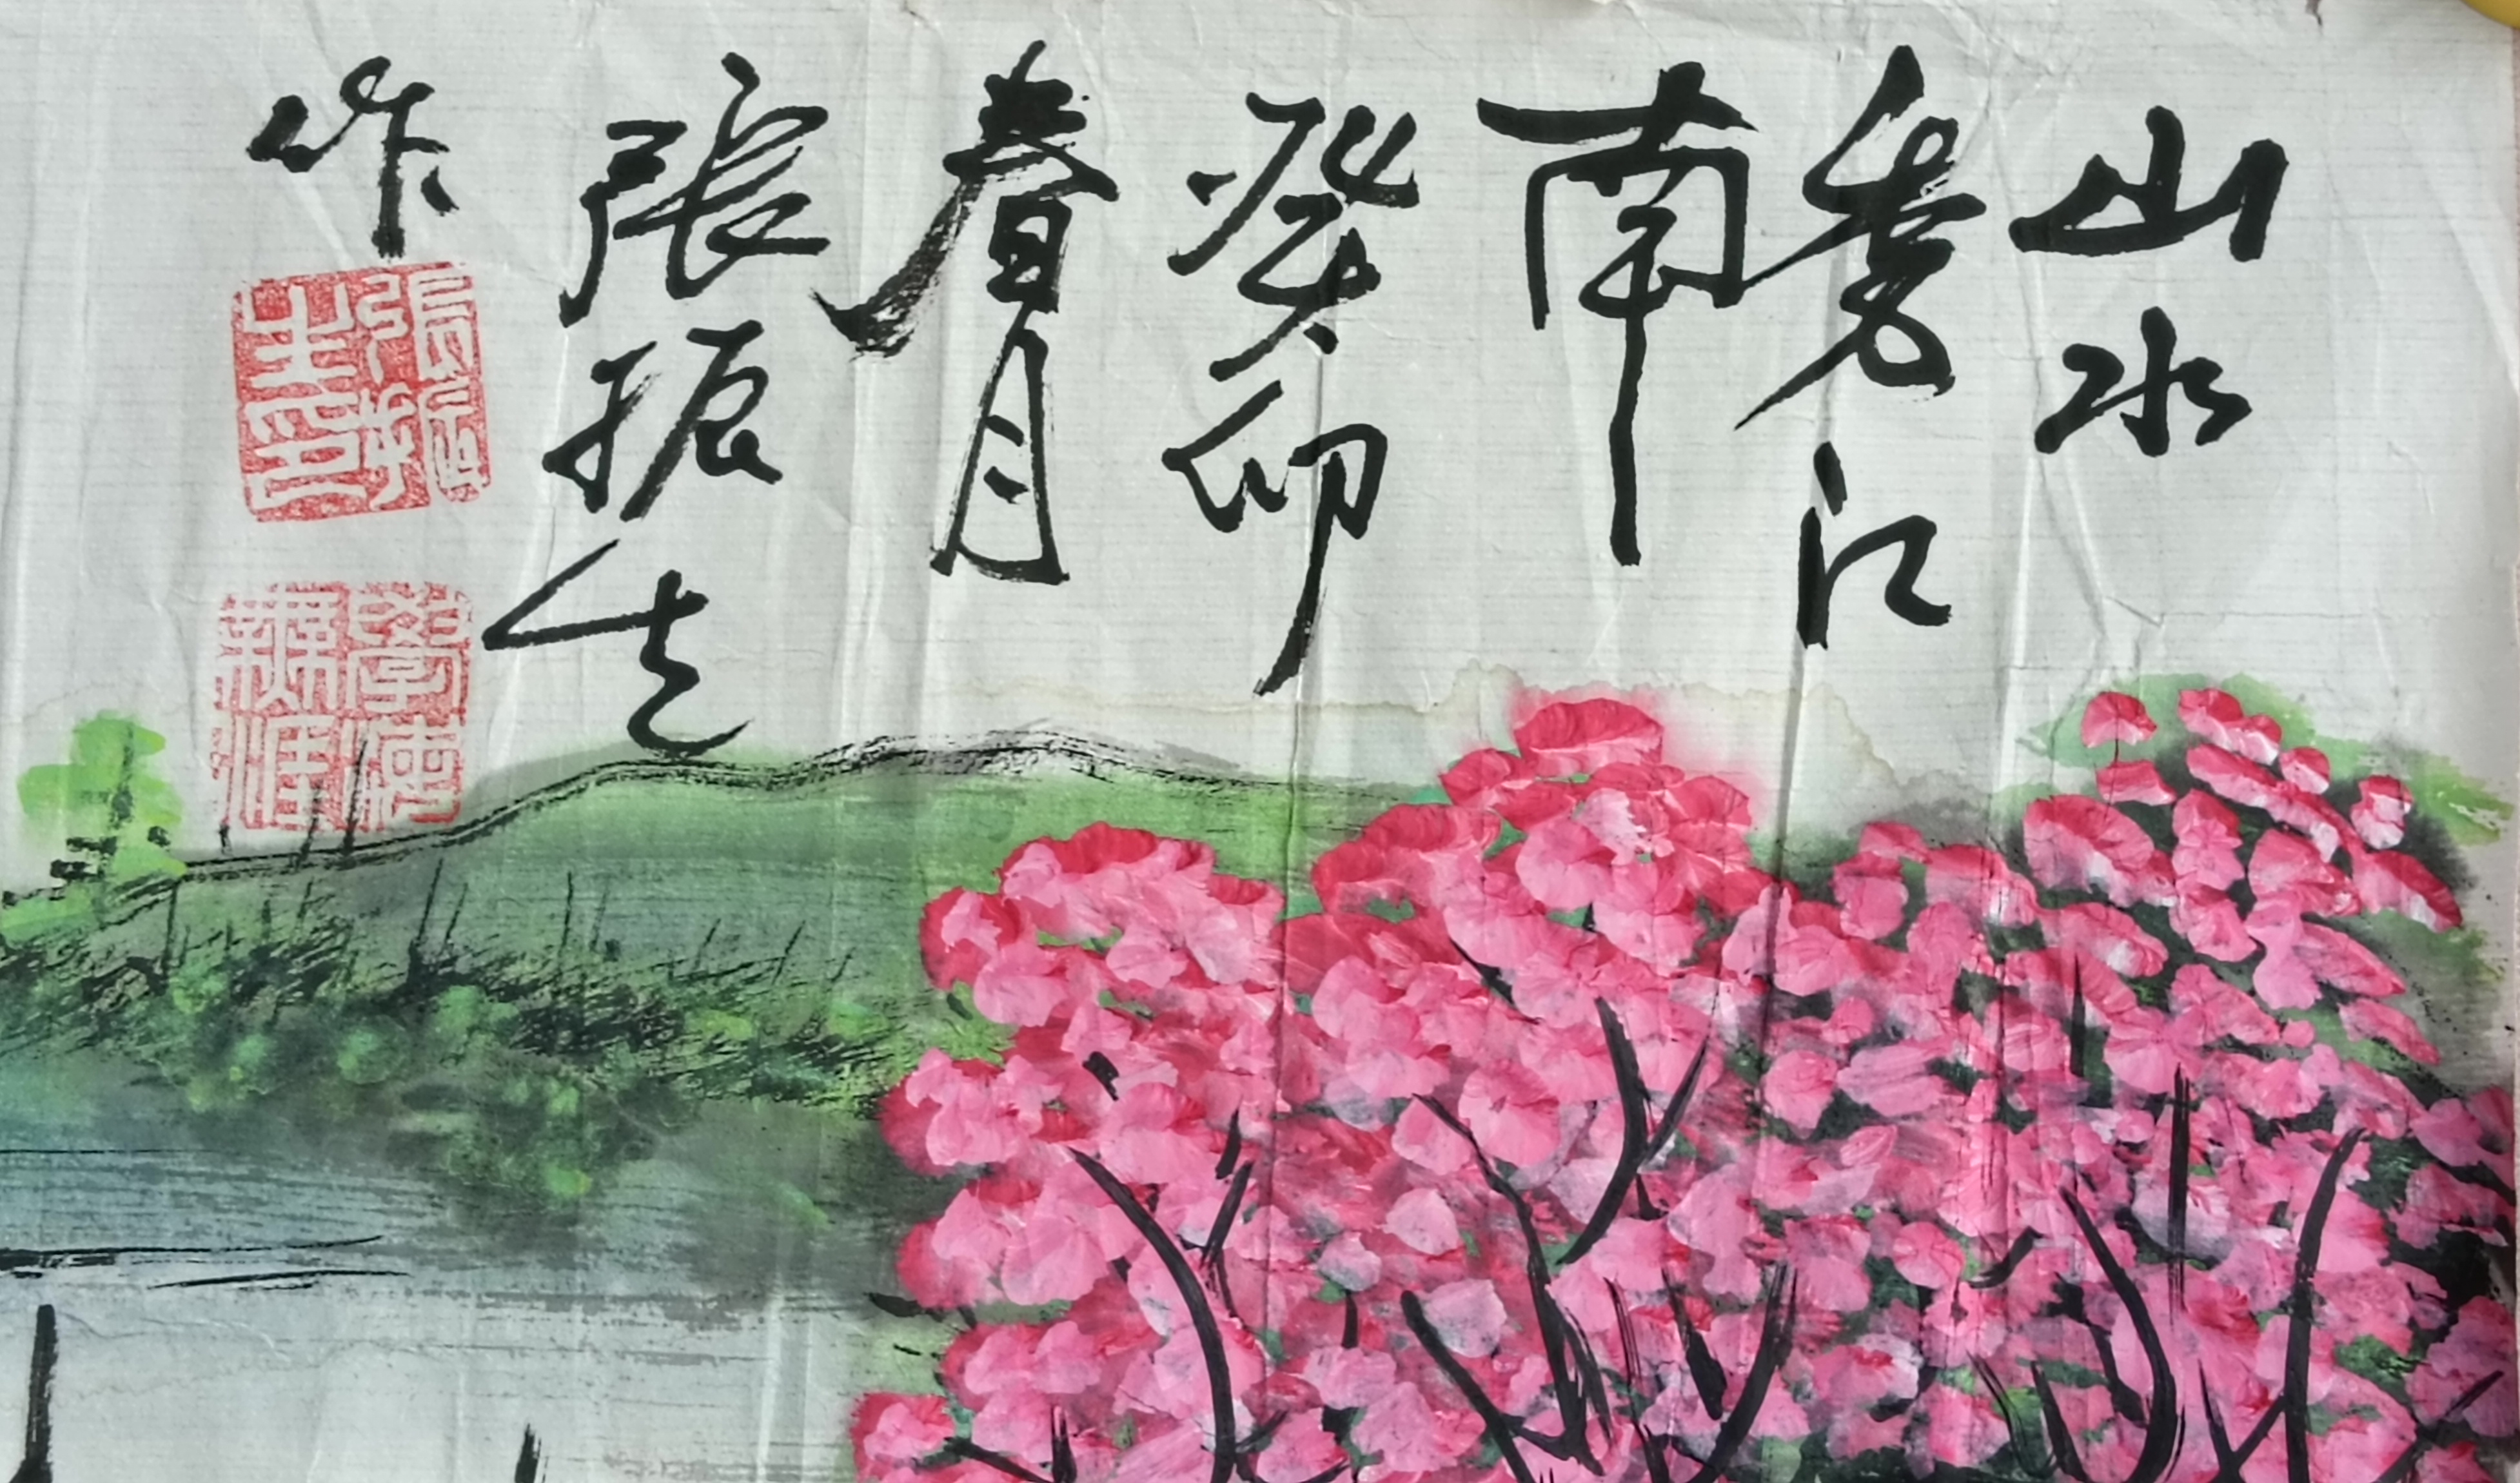 山水
秀江
南
癸卯
春月
張振生
作
張振生印
學海無涯